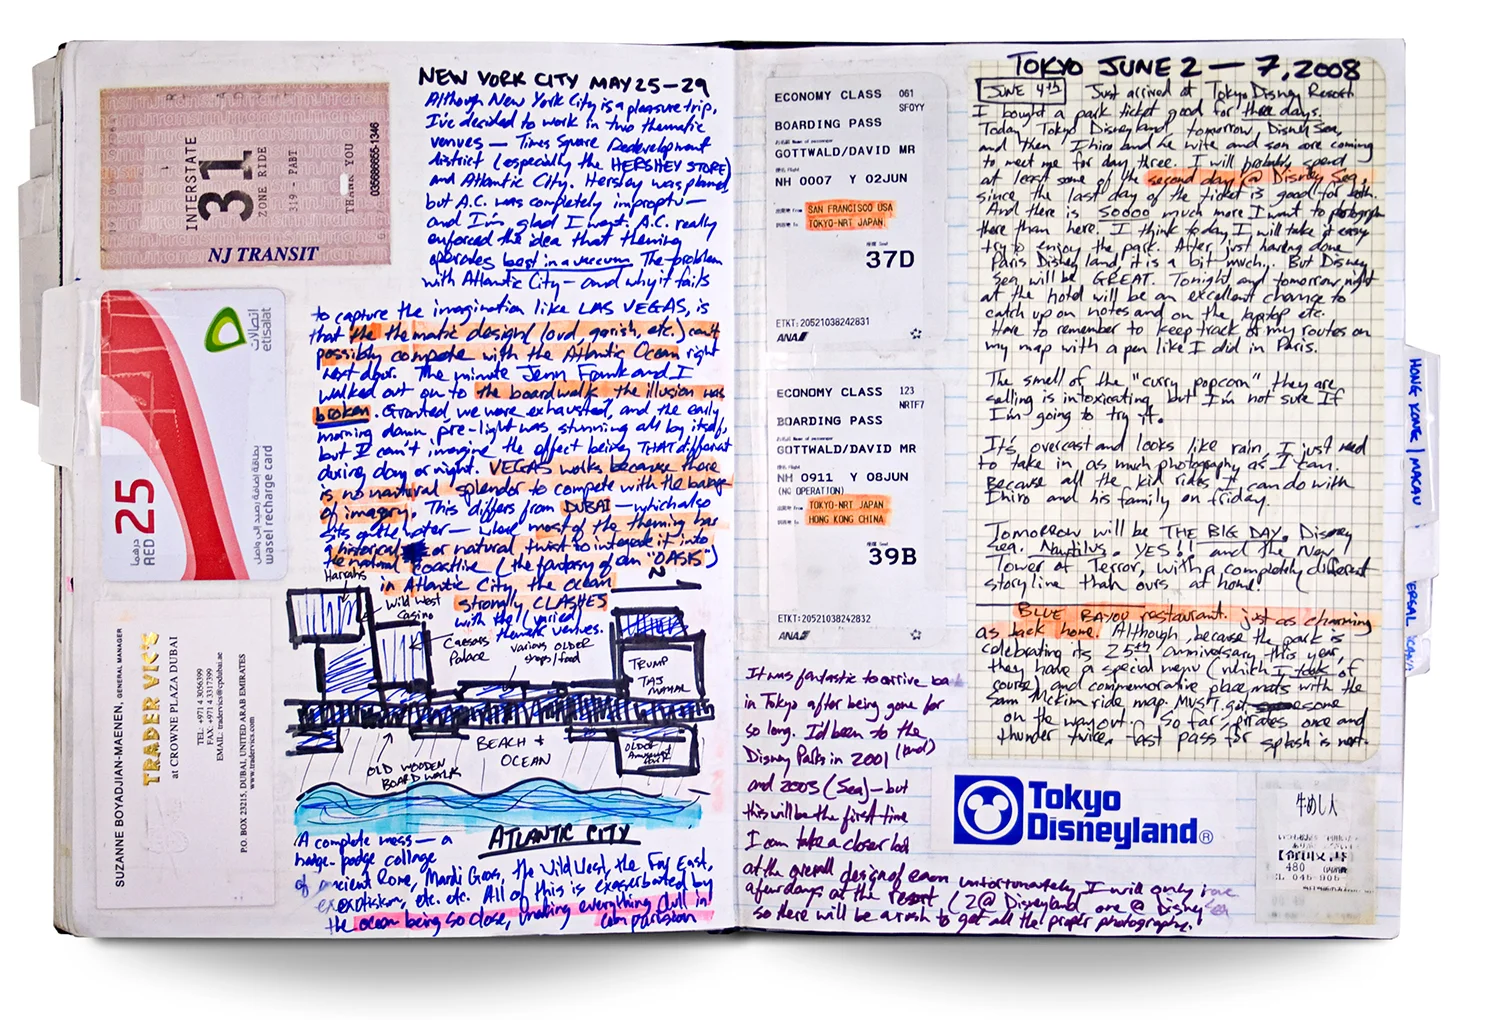 INTERSTATE
31
ZONE RIDE
319 - PABT
THANK YOU
NJ TRANSIT
اتصالات
etisalat
درهما
AED 25
wasel recharge card
SUZANNE BOYADJIAN-MAENEN, GENERAL MANAGER
TRADER VIC'S
at CROWNE PLAZA DUBAI
TEL: +971 4 3056399
FAX: +971 4 3317399
EMAIL: tradervics@cpdubai.ae
P.O. BOX 23215, DUBAI, UNITED ARAB EMIRATES
www.tradervics.com
NEW YORK CITY MAY 25-29
Although New York City is a pleasure trip,
I've decided to work in two thematic
venues — Times Square Redevelopment
district (especially the HERSHEY STORE)
and Atlantic City. Hershey was planned
but A.C. was completely impromptu —
and I'm glad I went. A.C. really
enforced the idea that theming
operates best in a vacuum. The problem
with Atlantic City — and why it fails
to capture the imagination like LAS VEGAS, is
that the thematic design (loud, garish, etc.) can't
possibly compete with the Atlantic Ocean right
next door. The minute Jenn Frank and I
walked out on to the boardwalk the illusion was
broken. Granted we were exhausted, and the early
morning dawn, pre-light was stunning all by itself,
but I can't imagine the effect being THAT different
during day or night. VEGAS works because there
is no natural splendor to compete with the barrage
of imagery. This differs from DUBAI — which also
sits on the water — where most of the theming has
a historical or natural twist to interpret it into
the natural coastline (the fantasy of an "OASIS")
in Atlantic City, the ocean
strongly CLASHES
with the varied
thematic venues.
N
Harrahs
Wild West
Casino
Caesars
Palace
various OLDER
shops/food
TRUMP
TAJ
MAHAL
OLD WOODEN
BOARDWALK
BEACH +
OCEAN
OLDER
Amusement
ATLANTIC CITY
A complete mess — a
hodge-podge collage
of ancient Rome, Mardi Gras, the Wild West, the Far East,
exoticism, etc. etc. All of this is exaserbated by
the ocean being so close, making everything dull in
comparision
ECONOMY CLASS 061
SFOYY
BOARDING PASS
GOTTWALD/DAVID MR
NH 0007 Y 02JUN
From SAN FRANCISCO USA
To TOKYO-NRT JAPAN
37D
ETKT:20521038242831
ANA
ECONOMY CLASS 123
NRTF7
BOARDING PASS
GOTTWALD/DAVID MR
NH 0911 Y 08JUN
(NQ OPERATION)
From TOKYO-NRT JAPAN
To HONG KONG CHINA
39B
ETKT:20521038242832
ANA
It was fantastic to arrive back
in Tokyo after being gone for
so long. I'd been to the
Disney Parks in 2001 (land)
and 2003 (Sea) — but
this will be the first time
I can take a closer look
at the overall design of each unfortunately I will only have
a few days at the resort (2 @ Disneyland one @ Disney Sea
so there will be a rush to get all the proper photography.
TOKYO JUNE 2 — 7, 2008
JUNE 4th Just arrived at Tokyo Disney Resort
I bought a park ticket good for three days.
Today Tokyo Disneyland tomorrow, Disney Sea,
and then Ihiro and he wife and son are coming
to meet me for day three. I will probably spend
at least some of the second day @ Disney Sea,
since the last day of the ticket is good for both.
And there is soooo much more I want to photograph
there than here. I think today I will take it easy
try to enjoy the park. After just having done
Paris Disneyland, it is a bit much... But Disney
Sea will be GREAT. Tonight and tomorrow night
at the hotel will be an excellent chance to
catch up on notes and on the laptop etc.
Have to remember to keep track of my routes on
my map with a pen like I did in Paris.
The smell of the "curry popcorn" they are
selling is intoxicating but I'm not sure if
I'm going to try it.
It's overcast and looks like rain, I just need
to take in as much photography as I can.
Because all the kid rides I can do with
Ihiro and his family on friday.
Tomorrow will be THE BIG DAY. Disney
Sea. Nautilus. YES!! and the New
Tower of Terror, with a completely different
storyline than ours at home!
BLUE BAYOU restaurant. just as charming
as back home. Although, because the park is
celebrating its 25th anniversary this year,
they have a special menu (which I took, of
course) and commemorative place mats with the
Sam McKim ride map. MUST get some
on the way out. So far, pirates once and
thunder twice. Fast pass for splash is next.
Tokyo
Disneyland®
牛めし大
480
HONG KONG | MACAU